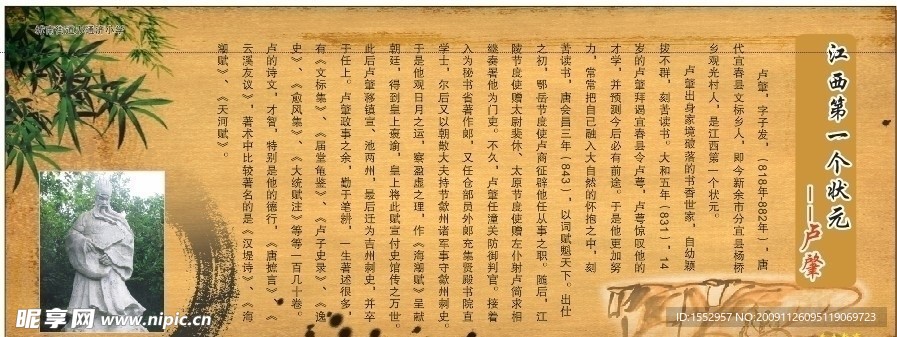 江西第一个状元
——卢肇
卢肇，字子发，（818年-882年），唐
代宜春县文标乡人，即今新余市分宜县杨桥
乡观光村人，是江西第一个状元。
卢肇出身家境破落的书香世家，自幼颖
拔不群，刻苦读书。大和五年（831），14
岁的卢肇拜谒宜春县令卢萼，卢萼惊叹他的
才学，并预测今后必有前途。于是他更加努
力，常常把自己融入大自然的怀抱之中，刻
苦读书，唐会昌三年（843），以词赋魁天下。出仕
之初，鄂岳节度使卢商征辟他任从事之职。随后，江
陵节度使赠太尉裴休、太原节度使赠左仆射卢简求相
继奏署他为门吏。不久，卢肇任潼关防御判官。接着
入为秘书省著作郎，又任仓部员外郎充集贤殿书院直
学士，尔后又以朝散大夫持节歙州诸军事守歙州刺史。
于是他观日月之运，察盈虚之理，作《海潮赋》呈献
朝廷，得到皇上褒谕，皇上将此赋宣付史馆传之万世。
此后卢肇移镇宣、池两州，最后迁为吉州刺史，并卒
于任上。卢肇政事之余，勤于笔耕，一生著述很多，
有《文标集》、《届堂龟鉴》、《卢子史录》、《逸
史》、《愈风集》、《大统赋注》等等一百几十卷。
卢的诗文，才智，特别是他的德行，《唐摭言》、《
云溪友议》，著术中比较著名的是《汉堤诗》、《海
潮赋》、《天河赋》。
昵享网 www.nipic.cn
ID:1552957 NO:20091126095119069723